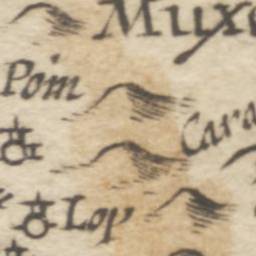 Muxo
Poim
Cara
Lop